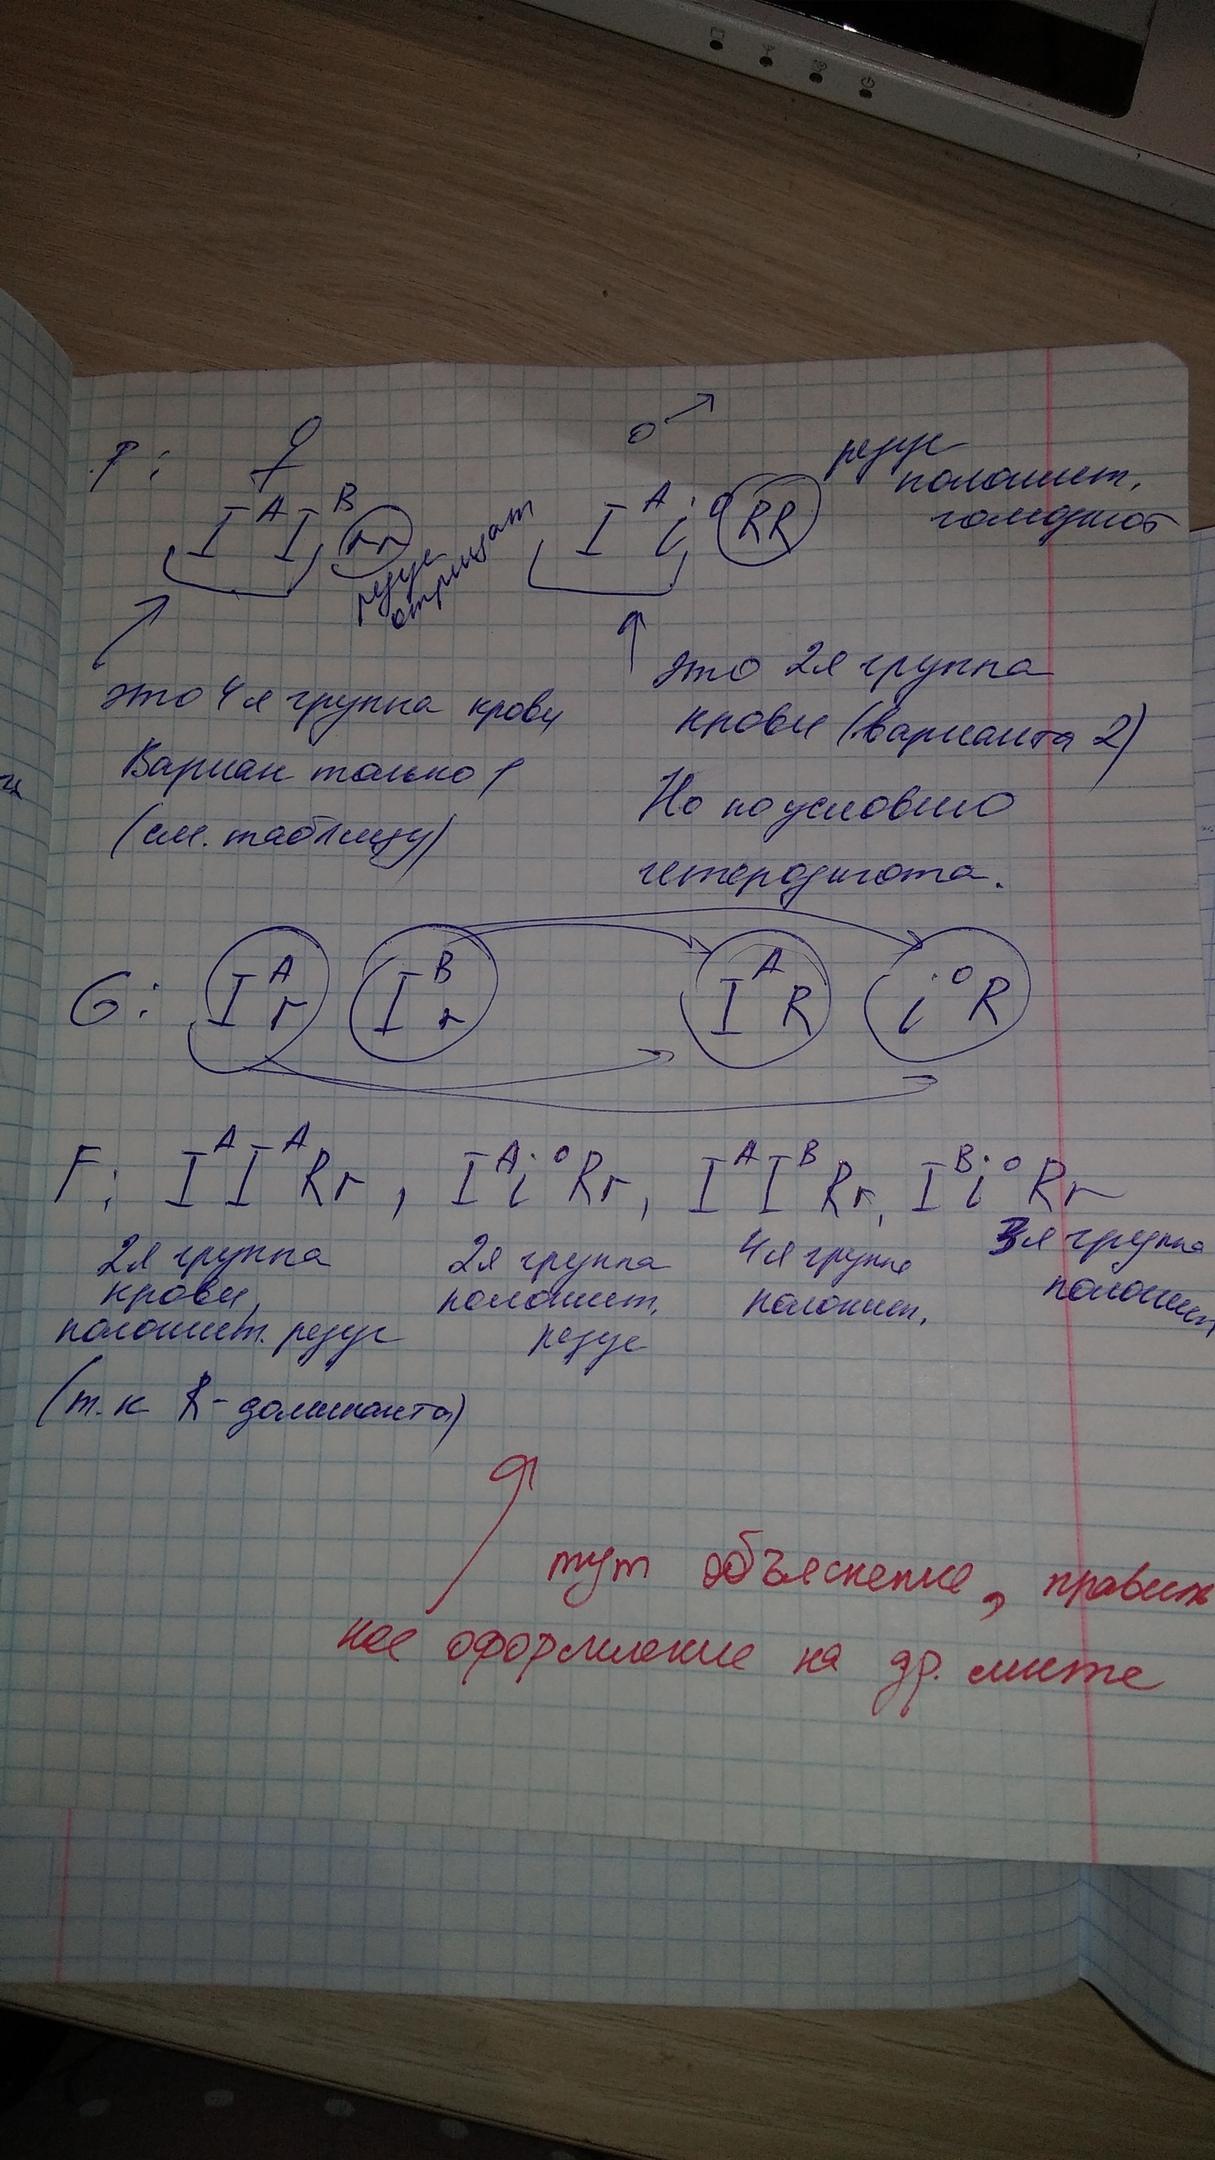 P: ♀ ♂
I^A I^B rr I^A i^0 RR
резус
положит,
гомозигот
резус
отрицат
это 4я группа крови
Вариан только 1
(см. таблицу)
это 2я группа
крови (варианта 2)
Но по условию
гетерозигота.
G: I^A r I^B r I^A R i^0 R
F: I^A I^A Rr, I^A i^0 Rr, I^A I^B Rr, I^B i^0 Rr
2я группа
крови,
положит. резус
(т.к R-доминанта)
2я группа
положит,
резус
4я группа
положит,
3я группа
положит
тут объяснение, правиль
ное оформление на др. листе